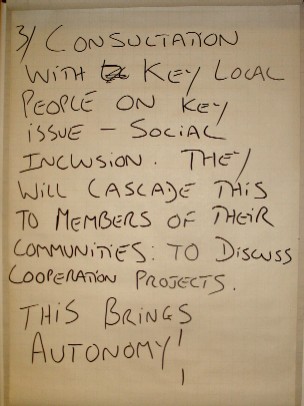 3/ CONSULTATION
WITH KEY LOCAL
PEOPLE ON KEY
ISSUE - SOCIAL
INCLUSION. THEY
WILL CASCADE THIS
TO MEMBERS OF THEIR
COMMUNITIES: TO DISCUSS
COOPERATION PROJECTS.
THIS BRINGS
AUTONOMY!